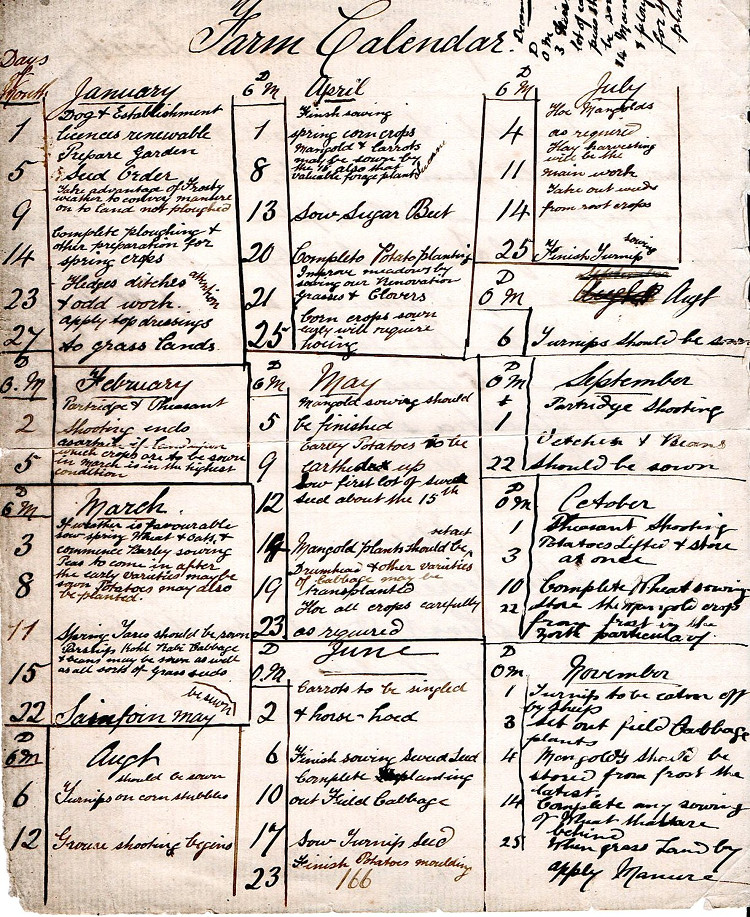 Farm Calendar.
Days
of
Month
January
Dog & Establishment
1 licences renewable
Prepare Garden
5 Seed Order
Take advantage of Frosty
weather to convey manure
9 on to land not ploughed
Complete ploughing &
14 other preparation for
spring crops
Hedges ditches attention
23 & odd work.
apply top dressings
27 to grass lands.
D
O. M
February
Partridge & Pheasant
2 Shooting ends
which crops are to be sown
5 in March is in the highest
condition
D
O M
March
If weather is favourable
sow spring Wheat & Oats, &
3 commence Barley sowing
Peas to come in after
the early varieties may be
8 sown Potatoes may also
be planted.
11 Spring Tares should be sown
Parsnip Kohl Rabi Cabbage
& Beans may be sown as well
15 as all sorts of Grass seeds
be sown
22 Sainfoin may
D
O M
Augt
should be sown
6 Turnips on corn stubbles
12 Grouse shooting begins
D
O M
April
Finish sowing
1 spring corn crops
Mangold & Carrots
may be sown by
8 the 16 also that
valuable forage plant Lucerne
13 Sow Sugar Beet
20 Complete Potato planting
Improve meadows by
sowing our Renovation
21 Grasses & Clovers
Corn crops sown
25 early will require
hoeing
D
O M
May
Mangold sowing should
5 be finished
Earley Potatoes to be
9 earthed up
Sow first lot of swede
12 seed about the 15th
set out
14 Mangold plants should be
Drumhead & other varieties
of Cabbage may be
19 transplanted
Hoe all crops carefully
23 as required
D
O M
June
Carrots to be singled
2 & horse-hoed
6 Finish sowing Swede Seed
Complete planting
10 out Field Cabbage
17 Sow Turnip Seed
23 Finish Potatoes moulding
166
D
O M
3
lot of
be
14
&
for
plan
D
O M
July
Hoe Mangolds
4 as required
Hay harvesting
will be the
11 main work
Take out weeds
14 from root crops
sowing
25 Finish Turnip
September
D
O M
Augt
6 Turnips should be sown
D
O M
September
1 Partridge Shooting
Vetches & Beans
22 should be sown
D
O M
October
1 Pheasant Shooting
Potatoes Lifted & store
3 at once
10 Complete Wheat sowing
22 Store the Mangold crops
from frost in the
North particularly.
D
O M
November
1 Turnips to be eaten off
by sheep
3 Set out field Cabbage
plants
4 Mangolds should be
stored from frost the
latest.
14 Complete any sowing
of Wheat that are
behind
25 When grass Land by
apply Manure